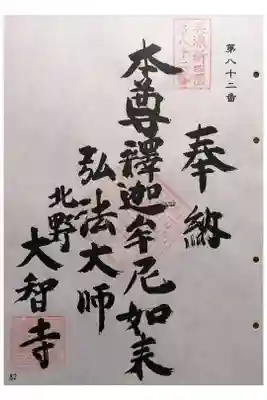 第八十二番
奉納
本尊釋迦牟尼如来
弘法大師
北野
大智寺
82